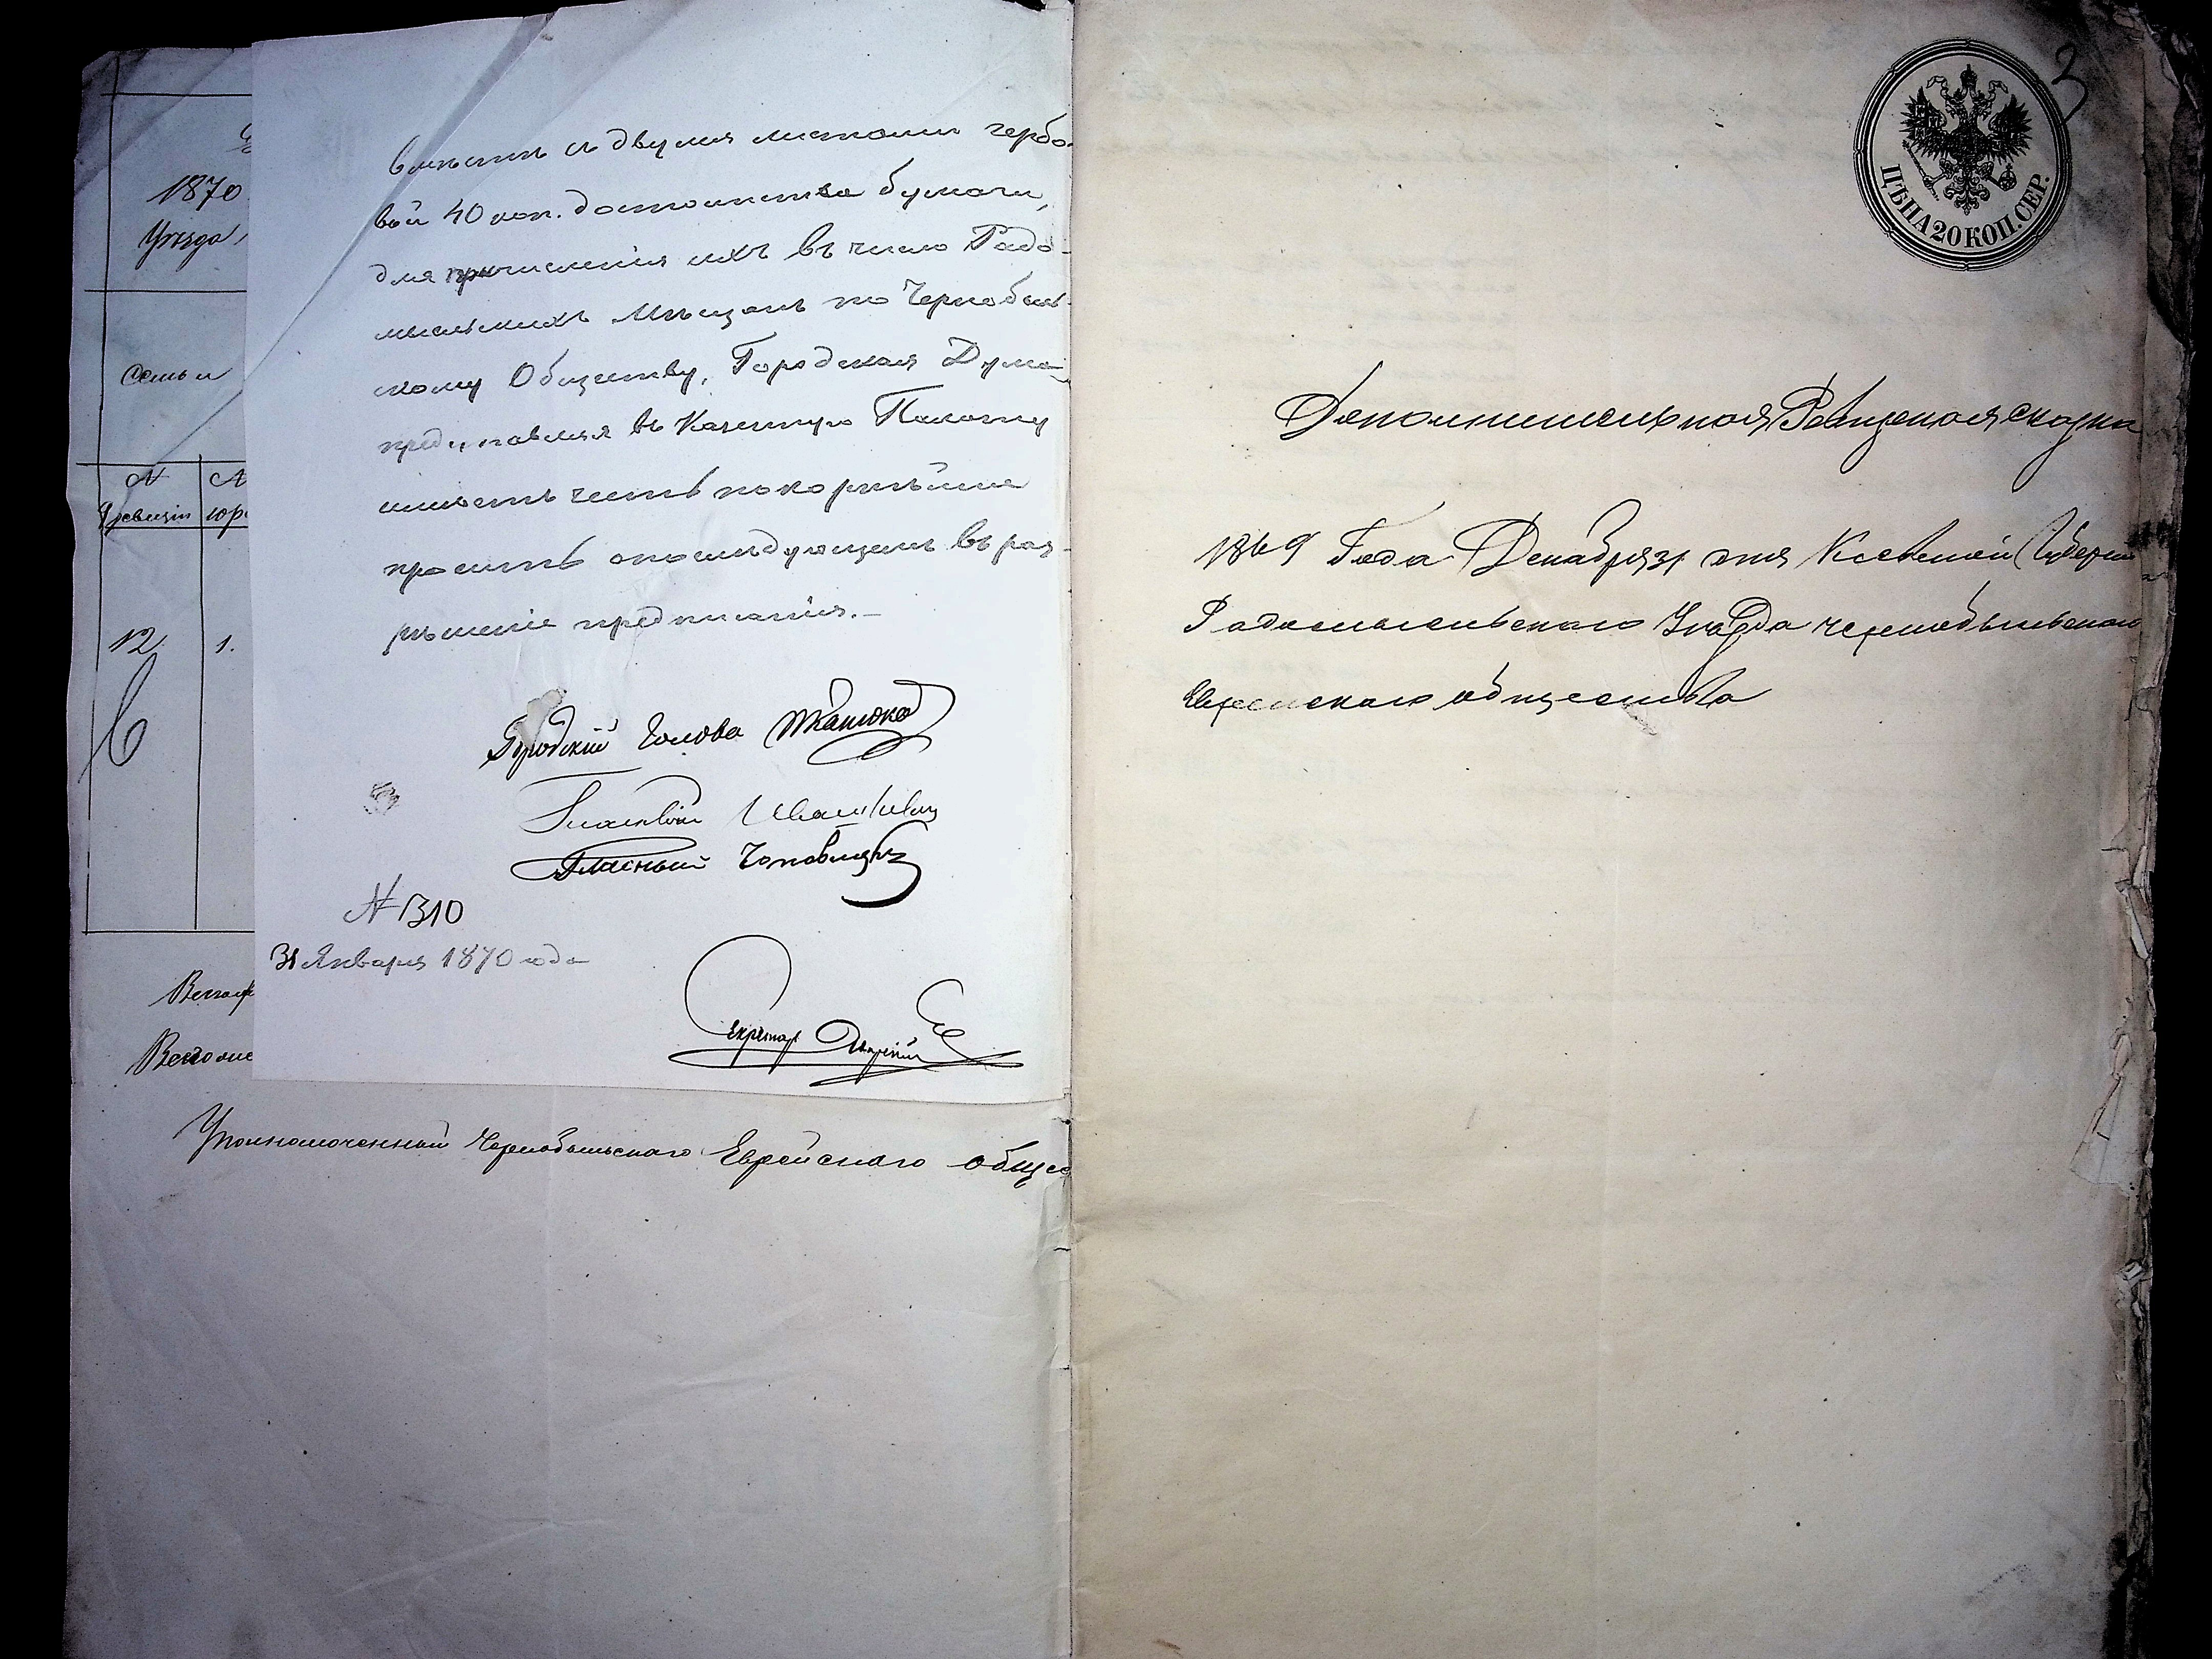 1870
Уѣзда
Семьи
N
ревизіи
12
1.
вмѣстѣ съ двумя листами гербо-
вой 40 коп. достоинства бумаги,
для причисленія ихъ въ число Радо-
мысльскихъ Мѣщанъ по Чернобыль-
скому Обществу, Городская Дума
представляя въ Казенную Палату
имѣетъ честь покорнѣйше
просить о послѣдующемъ въ раз-
рѣшеніе предписанія.—
Городскій Голова
Гласный
Гласный
N 1310
31 Января 1870 года
Секретарь
Уполномоченный Чернобыльскаго Еврейскаго общес
3
ЦѢНА 20 КОП. СЕР.
Дополнительная Ревизская сказка
1869 Года Декабря 31 дня Кіевской Губерніи
Радомысльскаго Уѣзда Чернобыльскаго
Еврейскаго общества